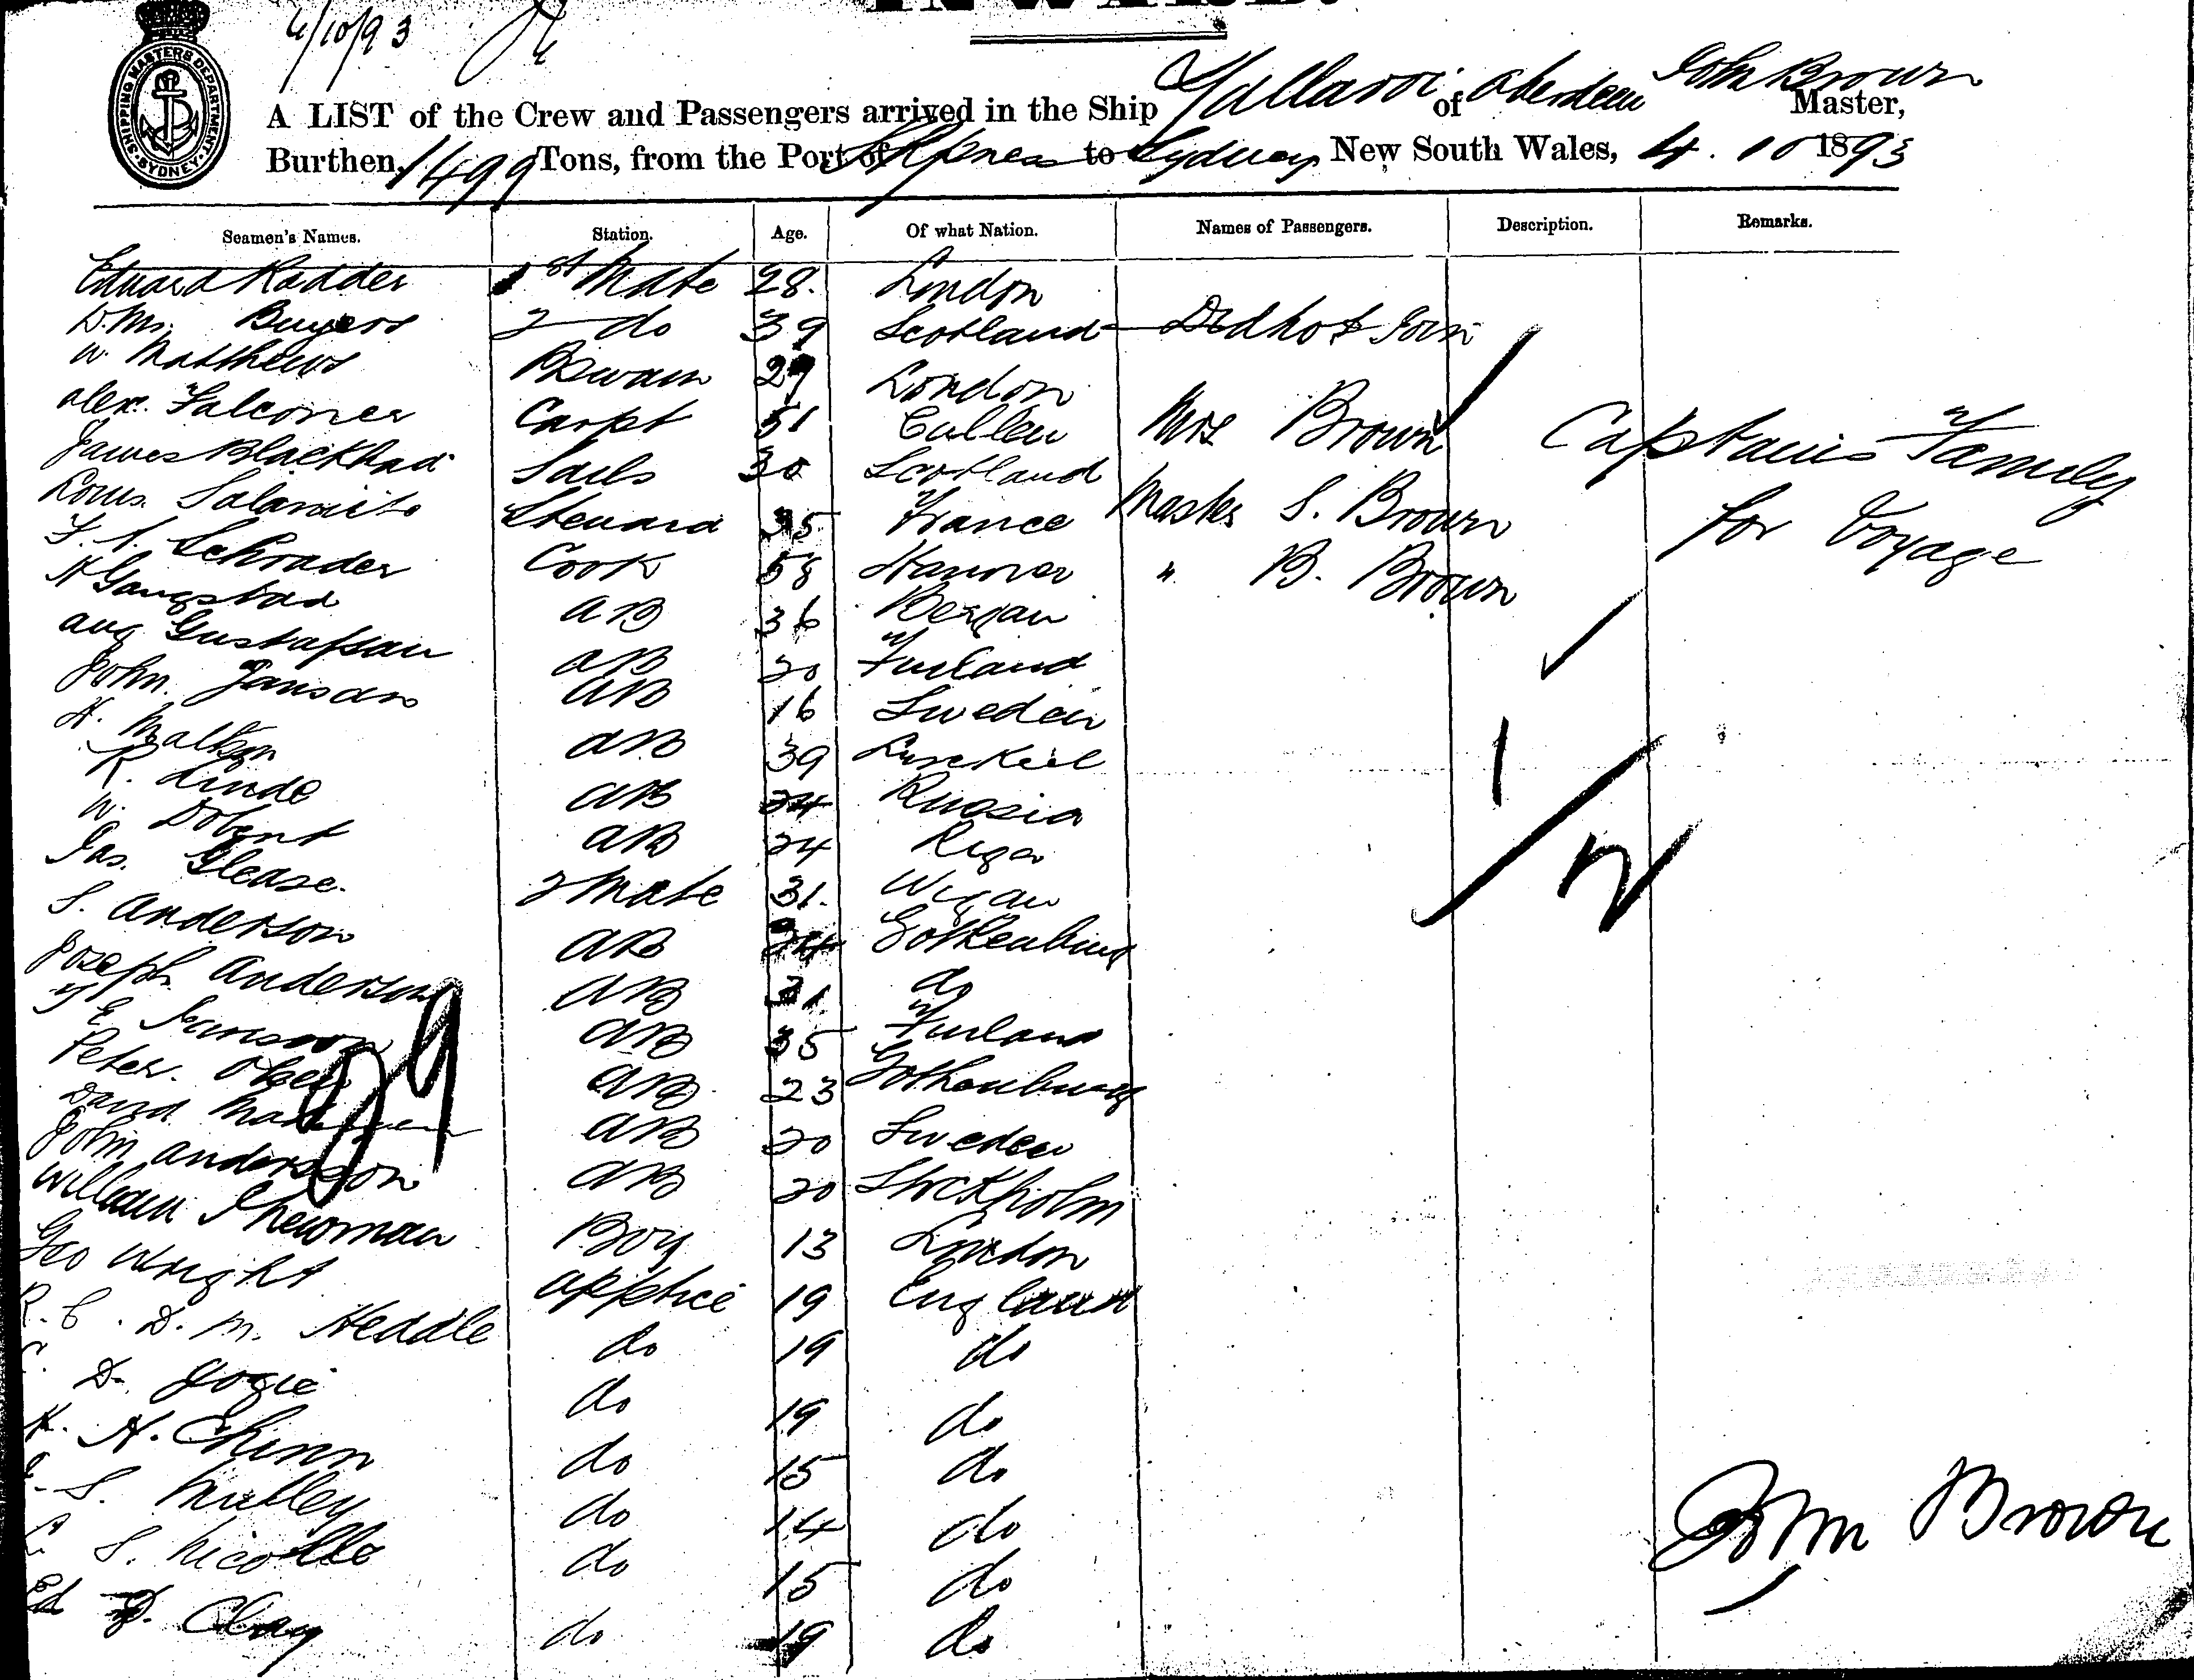 INWARD.
4/10/93
SHIPPING MASTERS DEPARTMENT SYDNEY
A LIST of the Crew and Passengers arrived in the Ship Yallaroi of Aberdeen John Brown Master,
Burthen, 1499 Tons, from the Port of to Sydney New South Wales, 4. 10 1893
Seamen's Names. Station. Age. Of what Nation. Names of Passengers. Description. Remarks.
Edward Kadder 1st Mate 28. London
D. M. Buyers 2 do 39 Scotland
W. Matthews BSwain 29 London
Alex. Falconer Carpt 51 Cullen Mrs Brown Captains Family
James Blackhad Sails 30 Scotland Master S. Brown for Voyage
Louis. Steward 35 France " B. Brown
F. A. Schrader Cook 58 Hanover
H Gangstad AB 36 Bergan
Aug Gustafsau AB 20 Finland
John. Jansan AB 16 Sweden
H. AB 39 Lusekeil
R. Linde AB 24 Russia
W. AB 24 Riga
Jas. Glease. 2 Mate 31. Wigan
S. Anderson AB 24 Gothenburg
Joseph Anderson AB 31 do
E AB 35 Finland
Peter. AB 23 Gothenburg
David AB 20 Sweden
John Andersson AB 20 Stockholm
William Boy 13 London
Geo Wright apptice 19 England
R. C. D. M. Heddle do 19 do
D. do 19 do
H. Chinn do 15 do
S. do 14 do
S. Nicolle do 15 do
Ed Clay do 19 do
29
1/2
John Brown